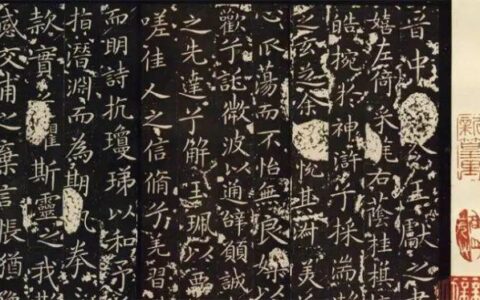 晉中令王獻之
嬉左倚采旄右蔭桂旗
皓捥於神滸兮採湍
之玄芝余悅其淑美
心振蕩而不怡無良媒以
歡兮託微波以通辭願誠
之先達兮解玉珮以要
嗟佳人之信脩兮羌習
而明詩抗瓊珶以和予
指潛淵而為期執眷
款實懼斯靈之我
感交甫之棄言悵猶